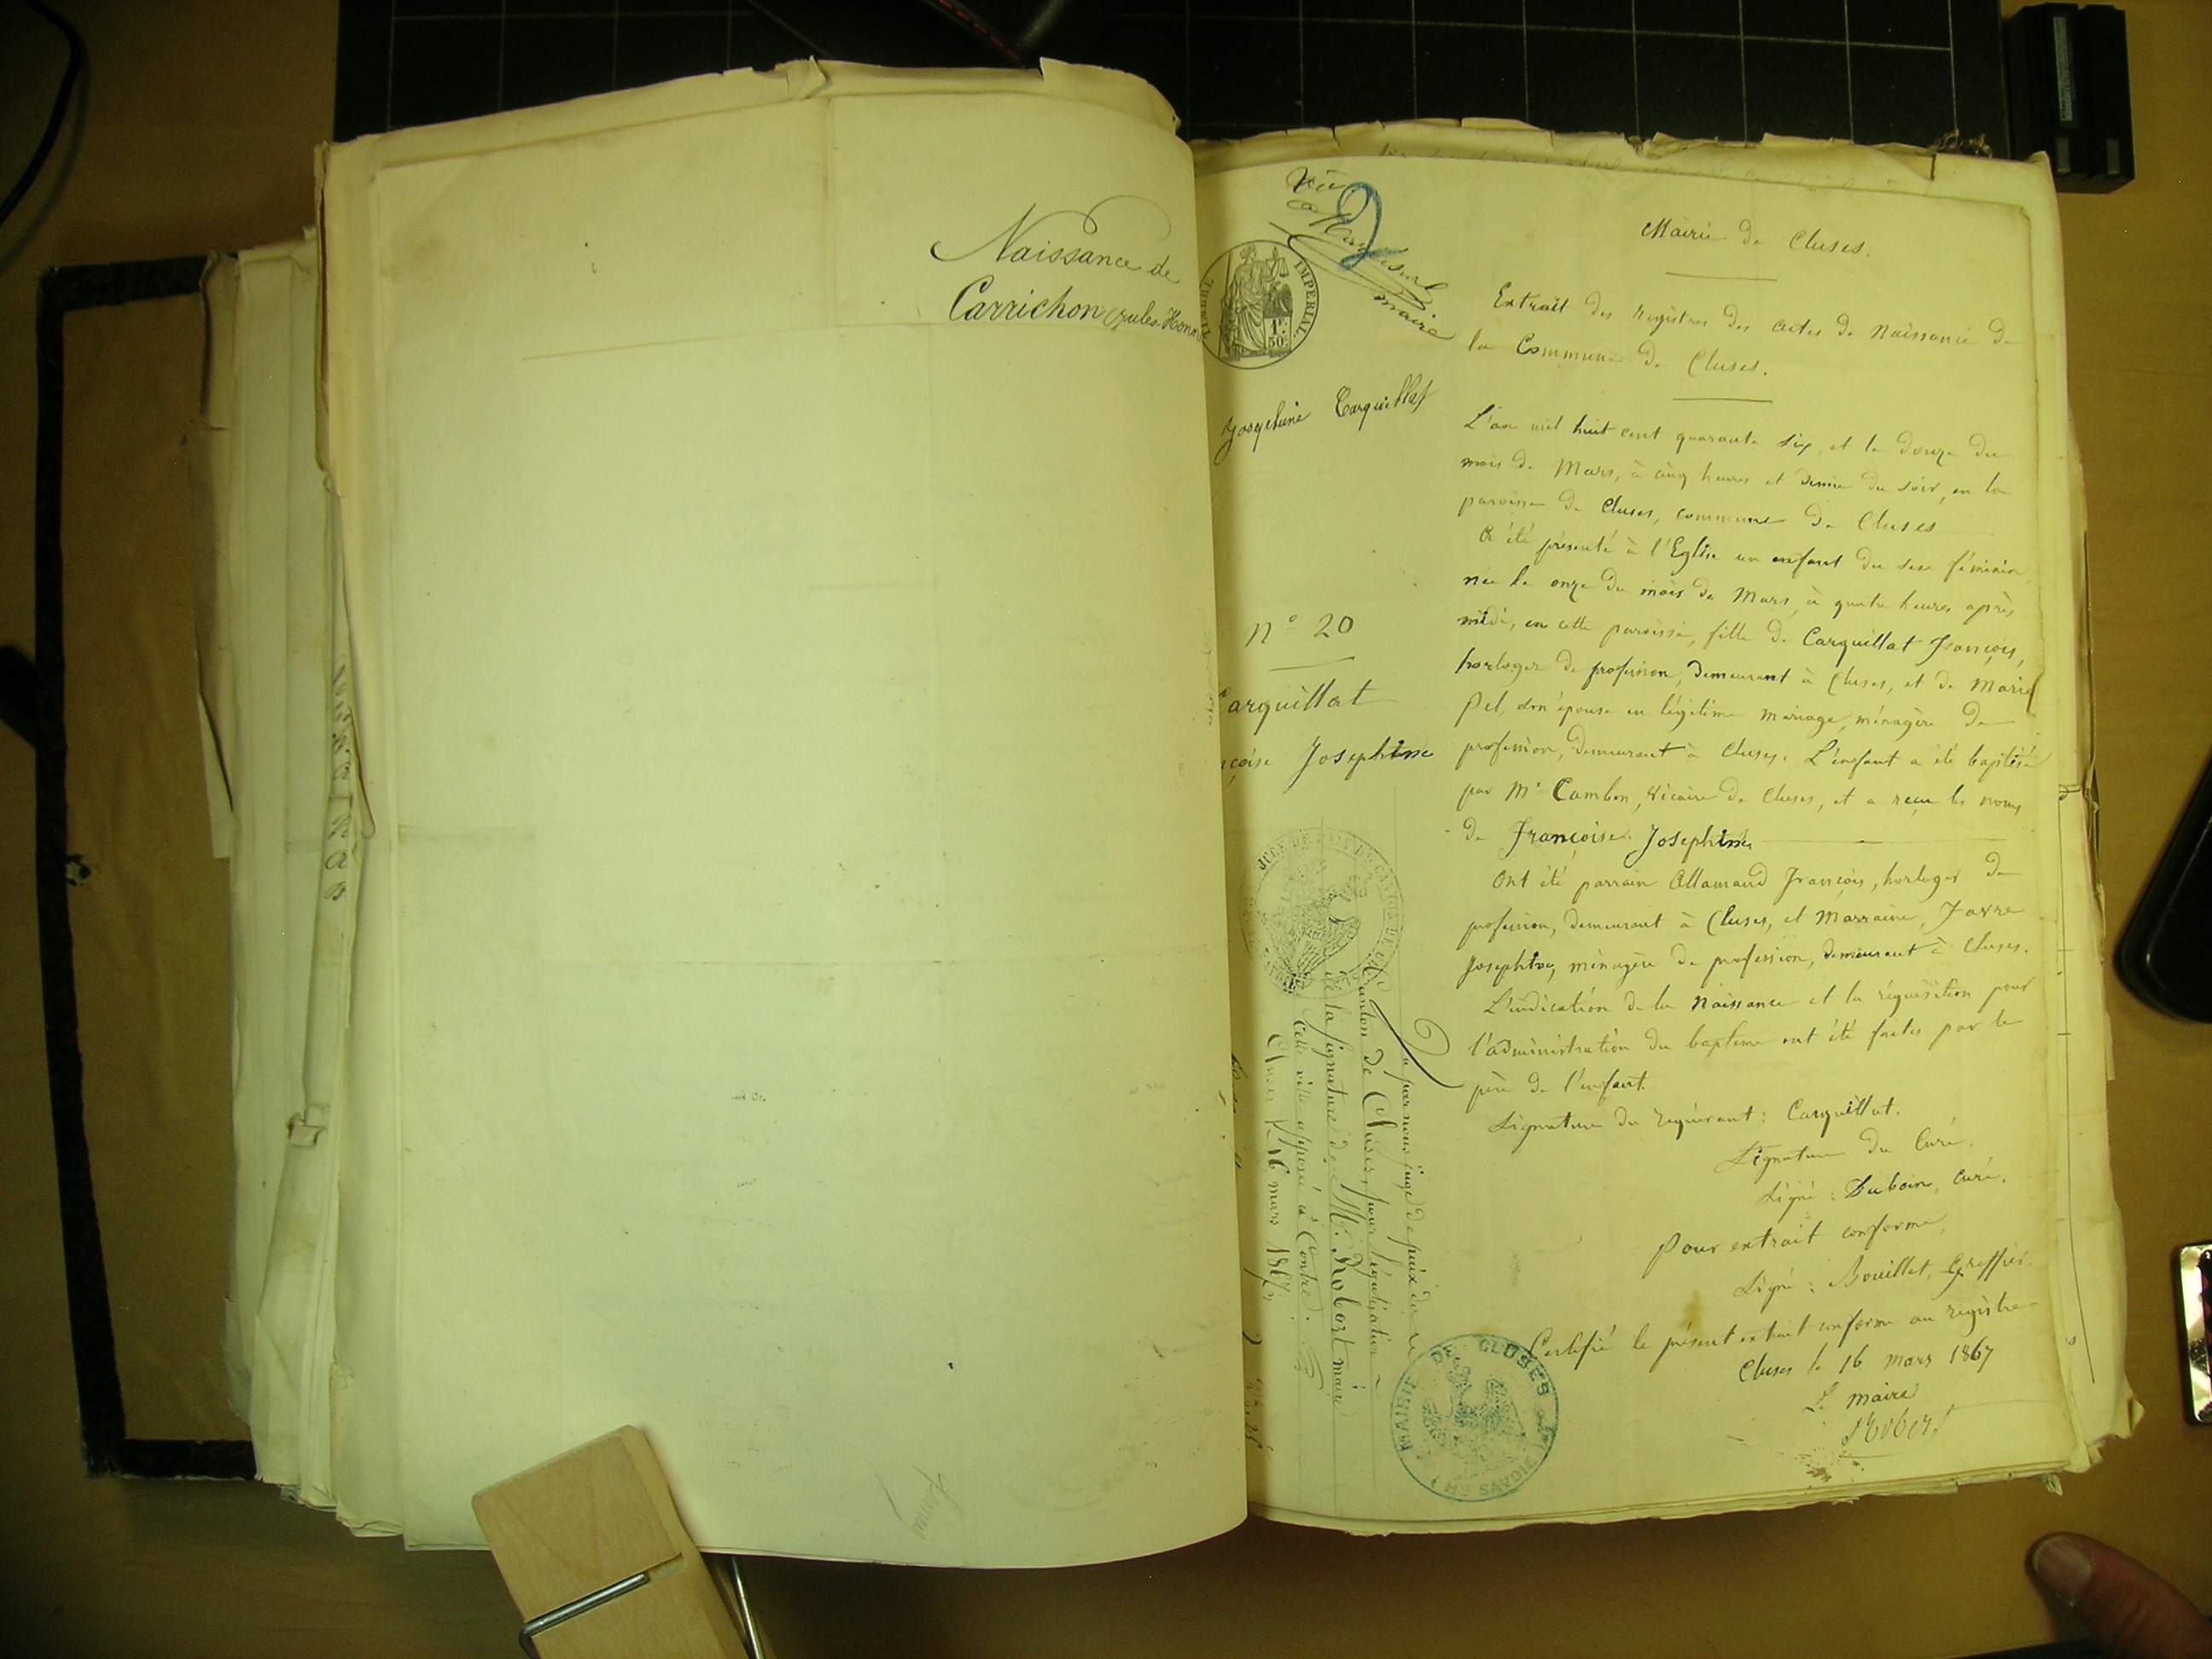 Naissance de
Carrichon Jules Honor
Vu
2
maire
TIMBRE IMPERIAL
1F.
50c.
Josephine Carquillat
N° 20
Carquillat
çoise Josephine
Mairie de Cluses.
Extrait des registres des actes de Naissance de
la Commune de Cluses.
L'an mil huit cent quarante six, et le douze du
mois de Mars, à cinq heures et demie du soir, en la
paroisse de Cluses, commune de Cluses
A été présenté à l'Eglise un enfant du sexe féminin,
née le onze du mois de Mars, à quatre heures après
midi, en cette paroisse, fille de Carquillat François,
horloger de profession, demeurant à Cluses, et de Marie
Pel, son épouse en légitime mariage, ménagère de
profession, demeurant à Cluses. L'enfant a été baptisé
par Mr Cambon, Vicaire de Cluses, et a reçu les noms
de Françoise Josephine
Ont été parrain Allamand François, horloger de
profession, demeurant à Cluses, et Marraine, Favre
Josephine, ménagère de profession, demeurant à Cluses.
L'indication de la Naissance et la réquisition pour
l'administration du baptême ont été faites par le
père de l'enfant.
Signature du requérant : Carquillat.
Signature du Curé.
Signé : Duboin, curé.
Pour extrait conforme,
Signé : Bouillet, Greffier.
Certifié le présent extrait conforme au registre
Cluses le 16 mars 1867
Le maire
Robert
MAIRIE DE CLUSES
Hte SAVOIE
Vu par nous juge de paix du
Canton de Cluses, pour légalisation
de la signature de M. Robert maire
de cette ville apposée ci Contre.
Cluses le 16 mars 1867